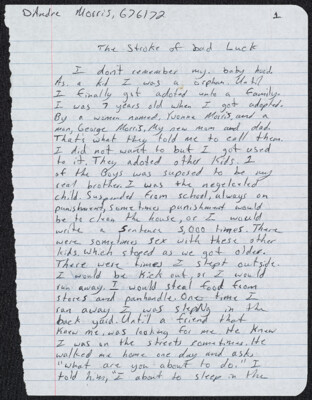 DAndre Morris, 676172
1
The Stroke of bad Luck
I don't remember my baby hood
As a kid I was a orphan. Until
I finally got adoted unto a family.
I was 7 years old when I got adopted.
By a women named, Yvonne Morris, and a
man, George Morris, My new mom and dad.
Thats what they told me to call them
I did not want to but I got used
to it. They adoted other kids. 1
of the Boys was suposed to be my
real brother. I was the negelected
child. Suspended from school, always on
punishment, sometimes punishment would
be to clean the house, or I would
write a sentance 5,000 times. There
were sometimes sex with these other
kids. Which stoped as we got older.
There were times I slept outside.
I would be kick out, or I would
run away. I would steal food from
stores and panhandle. One time I
ran away I was sleping in the
back yard. Until a friend that
knew me, was looking for me He knew
I was on the streets sometimes. He
walked me home one day and ask
"what are you about to do." I
told him, "I about to sleep in the